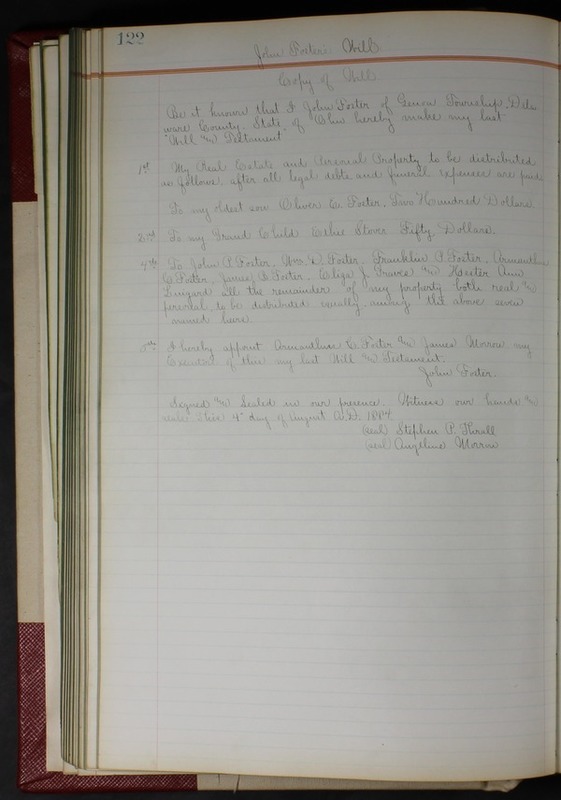 122
John Foster's Will
Copy of Will
Be it known that I John Foster of Genoa Township, Dela
ware County, State of Ohio hereby make my last
Will and Testament
1st My Real Estate and Personal Property to be distributed
as follows, after all legal debts and funeral expenses are paid
To my oldest son Oliver C. Foster, Two Hundred Dollars.
3rd To my Grand Child Celie Storrs Fifty Dollars.
4th To John P. Foster, Wm. D. Foster, Franklin P. Foster, Armanthua
C. Foster, James B. Foster, Eliza J. and Hester Ann
all the remainder of my property both real and
personal to be distributed equally among the above seven
named heirs.
5th I hereby appoint Armanthua C. Foster and James Morrow my
Executors of this my last Will and Testament.
John Foster.
Signed and Sealed in our presence. Witness our hands and
seals this 4" day of August A.D. 1884.
(seal) Stephen P. Thrall
(seal) Angeline Morrow